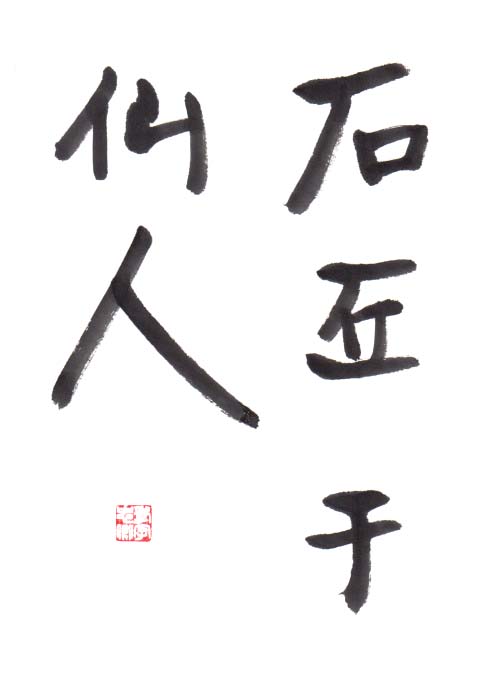 石匠于
仙人